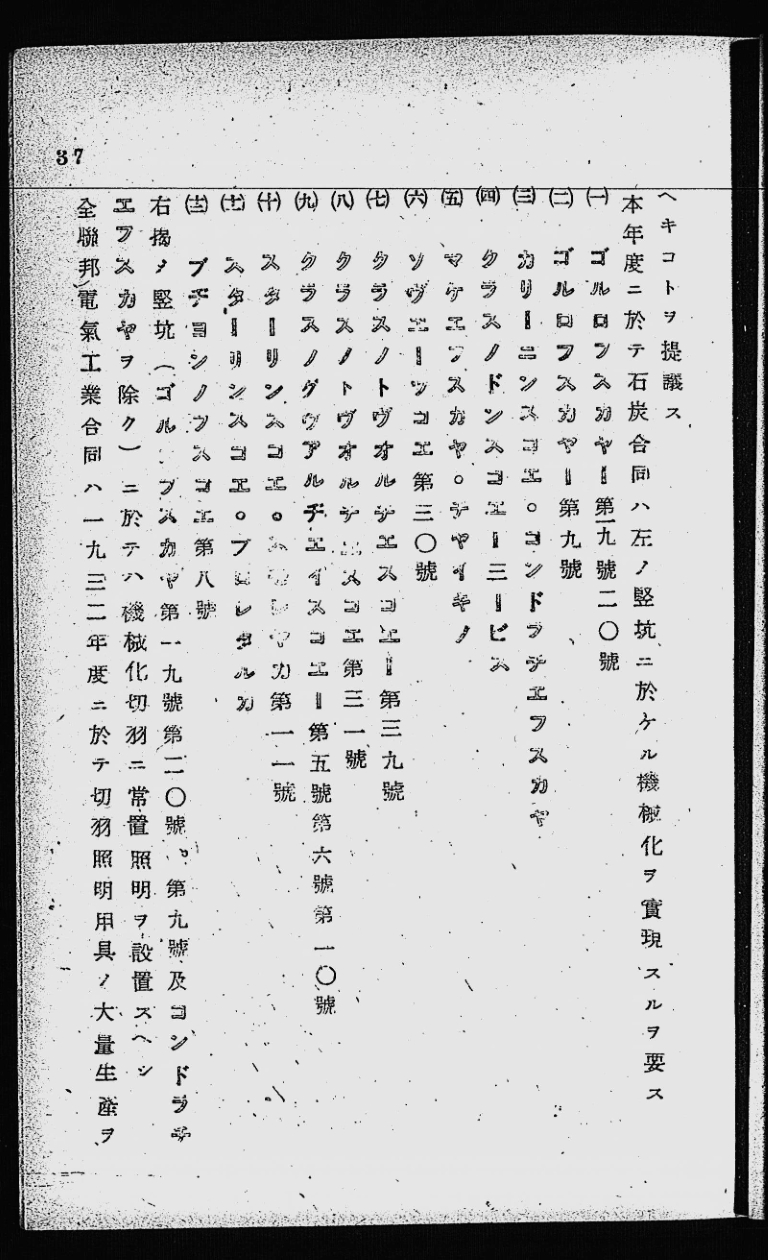 37
ヘキコトヲ提議ス
本年度ニ於テ石炭合同ハ左ノ竪坑ニ於ケル機械化ヲ實現スルヲ要ス
(一) ゴルロフスカヤー第一九號二〇號
(二) ゴルロフスカヤー第九號
(三) カリーニンスコエ。コンドラチエフスカヤ
(四) クラスノドンスコエー三ービス
(五) マケエフスカヤ。チヤイキノ
(六) ソヴエーツコエ第三〇號
(七) クラスノトヴオルチエスコエー第三九號
(八) クラスノトヴオルチエスコエ第三一號
(九) クラスノグヴアルヂエイスコエー第五號第六號第一〇號
(十) スターリンスコエ。 ヤカ第一一號
(十一) スターリンスコエ。プロレタルカ
(十二) ブヂヨンノフスコエ第八號
右揭ノ竪坑(ゴル フスカヤ第一九號第二〇號。第九號及コンドラチ
エフスカヤヲ除ク)ニ於テハ機械化切羽ニ常置照明ヲ設置スヘシ
全聯邦電氣工業合同ハ一九三二年度ニ於テ切羽照明用具ノ大量生產ヲ